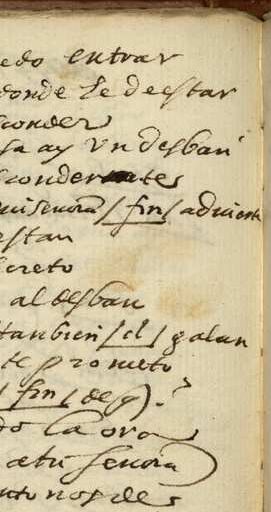 edo entrar
donde se de estar
conder
sa ay un desban
sconderte
mi senora / fin / advierte
estan
creto
al desban
tambien / el / galan
te prometo
/ fin / de
do la ora
a tu senora
nto nos de